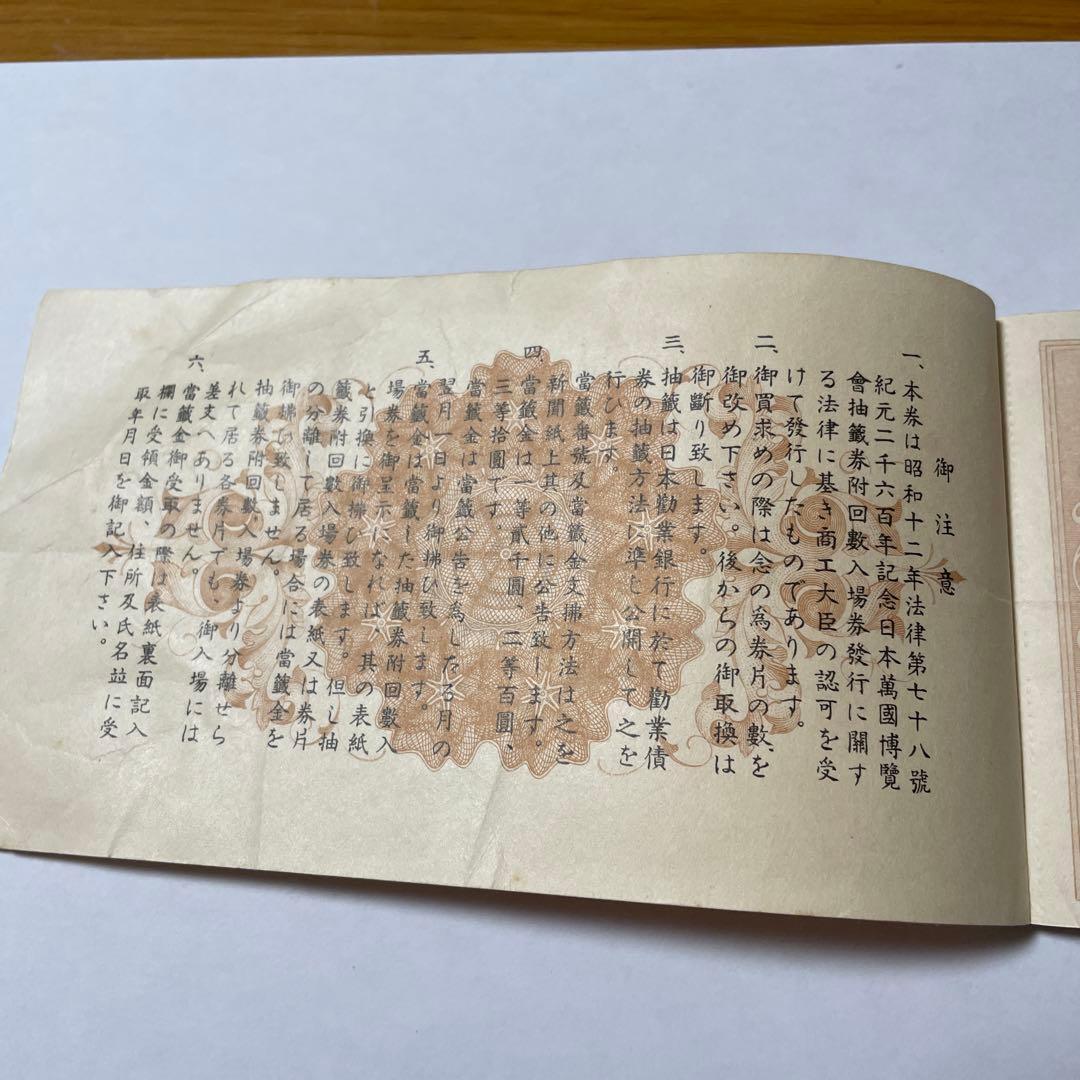 御注意
一、本券は昭和十二年法律第七十八號
紀元二千六百年記念日本萬國博覽
會抽籤券附回數入場券發行に關す
る法律に基き商工大臣の認可を受
けて發行したものであります。
二、御買求めの際は念の爲券片の數を
御改め下さい。後からの御取換は
御斷り致します。
三、抽籤は日本勸業銀行に於て勸業債
券の抽籤方法に準じ公開して之を
行ひます。
當籤番號及當籤金支拂方法は之を
新聞紙上其の他に公告致します。
四、當籤金は一等貳千圓、二等百圓、
三等拾圓です。
當籤金は當籤公告を爲したる月の
翌月一日より御拂ひ致します。
五、當籤金は當籤した抽籤券附回數入
場券を御呈示になれば、其の表紙
と引換に御拂ひ致します。但し抽
籤券附回數入場券の表紙又は券片
の分離して居る場合には當籤金を
御拂ひ致しません。
六、抽籤券附回數入場券より分離せら
れて居る各券片でも、御入場には
差支へありません。
當籤金御受取の際は表紙裏面記入
欄に受領金額、住所及氏名竝に受
取年月日を御記入下さい。